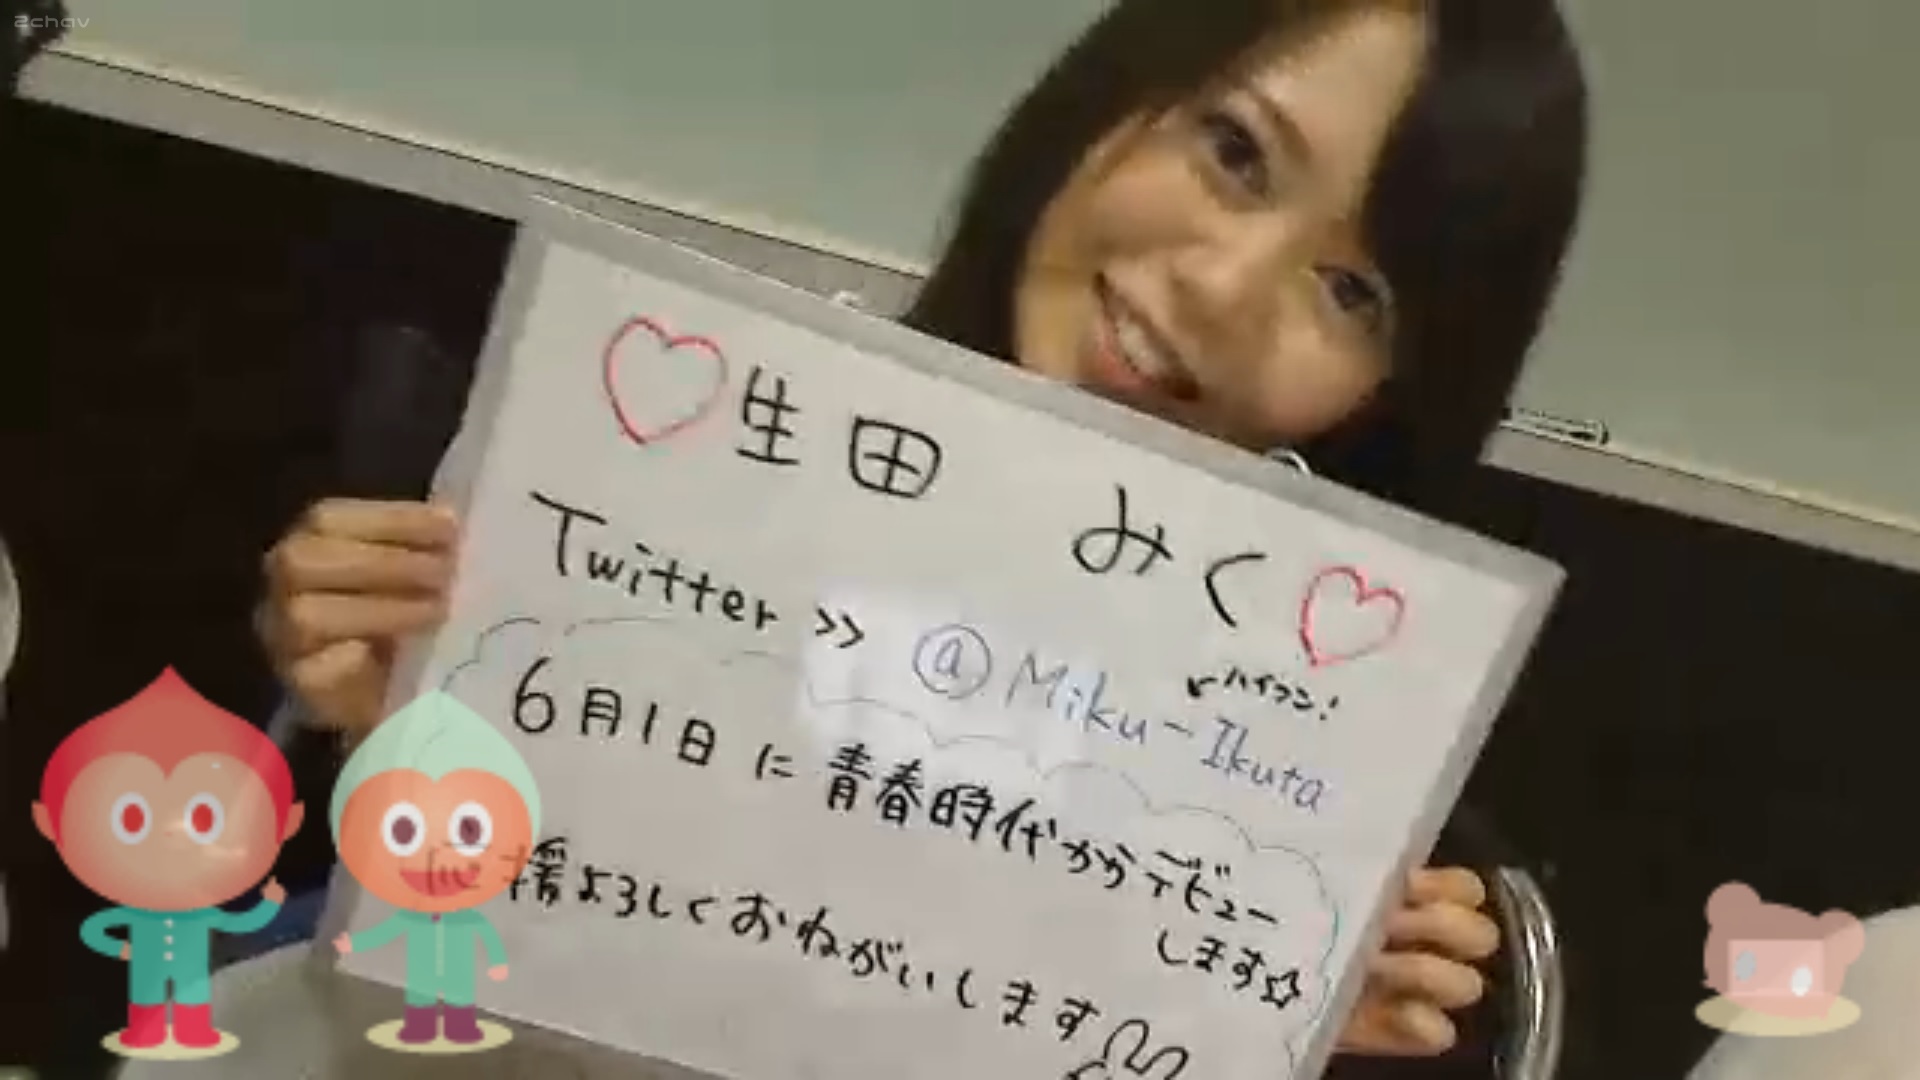 2chav
♡生田 みく♡
Twitter >> @Miku-Ikuta
↙ハイフン!
6月1日に青春時代からデビュー
します☆
援よろしくおねがいします